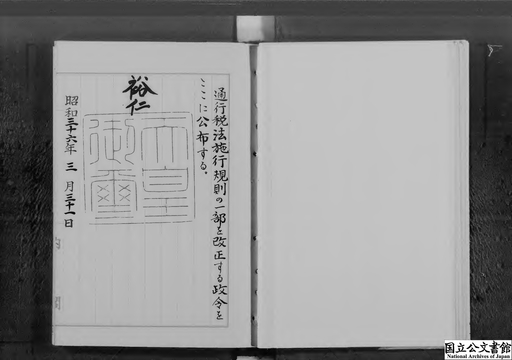 通行税法施行規則の一部を改正する政令を
ここに公布する。
裕仁
天皇
御璽
昭和三十六年三月三十一日
国立公文書館
National Archives of Japan